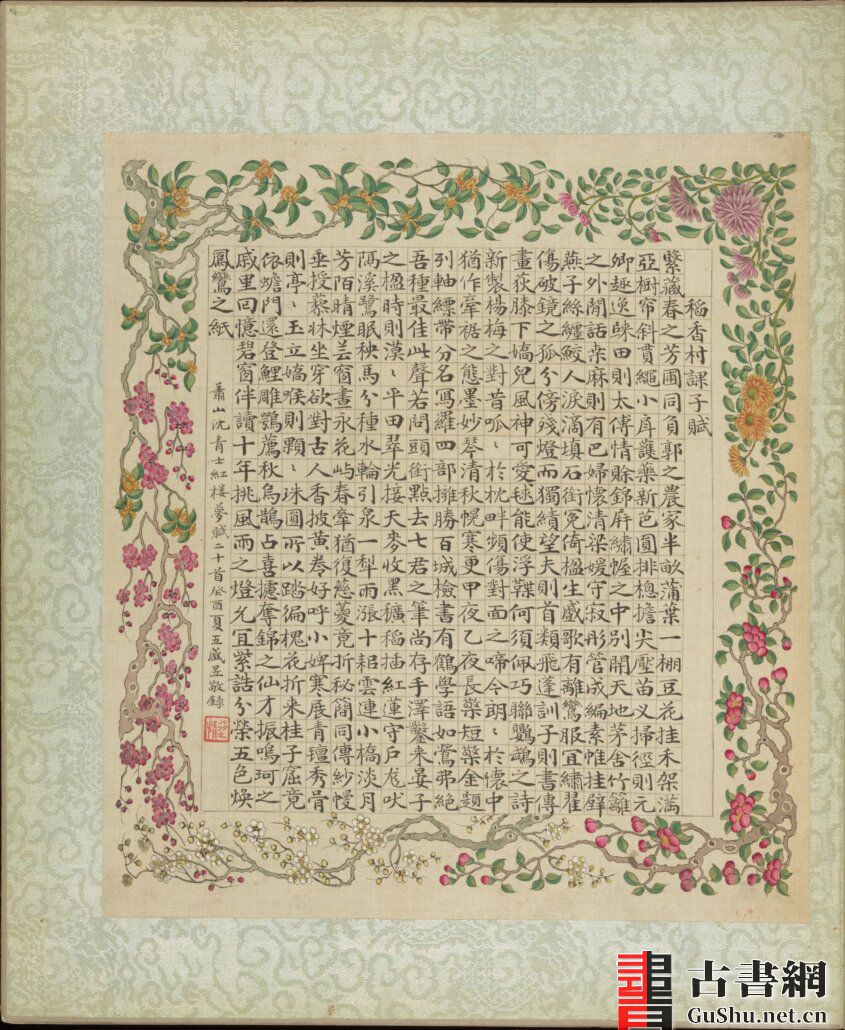 稻香村課子賦
繄藏春之芳圃同負郭之農家半畝蒲葉一棚豆花挂禾架滿
亞樹帘斜貫繩小戽護藥新芭圓排楤擔尖壓苗义掃徑則元
卿趣逸賕田則太傅情賒錦屏繡幄之中別開天地茅舍竹籬
之外閒話桑麻則有巴婦懷清梁嫒守寂彤管成編素帷挂壁
燕子絲纏鮫人淚滴填石銜冤倚楹生慼歌有離鸞服宜繡翟
傷破鏡之孤兮傍殘燈而獨績望夫則首類飛蓬訓子則書傳
畫荻膝下嬌兒風神可愛毬能使浮韘何須佩巧聯鸚鵡之詩
新製楊梅之對昔呱〻於枕畔頻傷對面之啼今朗〻於懷中
猶作牽裾之態墨妙琴清秋幌寒更甲夜乙夜長檠短檠金題
列軸縹帶分名寫羅四部擁勝百城檢書有鶴學語如鶯弗絕
吾種最佳此聲若問頭銜點去七君之筆尚存手澤鑿來晏子
之楹時則漠〻平田翠光接天麥收黑穬稻插紅蓮守戶尨吠
隔溪鷺眠秧馬分種水輪引泉一犁雨漲十耜雲連小橋淡月
芳陌晴煙芸窗晝永花嶼春牽猶復慈蔆竟折秘簡同傳紗幔
垂授藜牀坐穿欲對古人香披黃卷好呼小婢寒展青氊秀骨
則亭〻玉立嬌喉則顆〻珠圓所以踏徧槐花折來桂子窟竟
依蟾門還登鯉雕鶚薦秋烏鵲占喜攄奪錦之仙才振鳴珂之
戚里回憶碧窗伴讀十年挑風雨之燈允宜紫誥分榮五色煥
鳳鸞之紙
蕭山沈青士紅樓夢賦二十首癸酉夏五盛昱敬錄
古書網
GuShu.net.cn